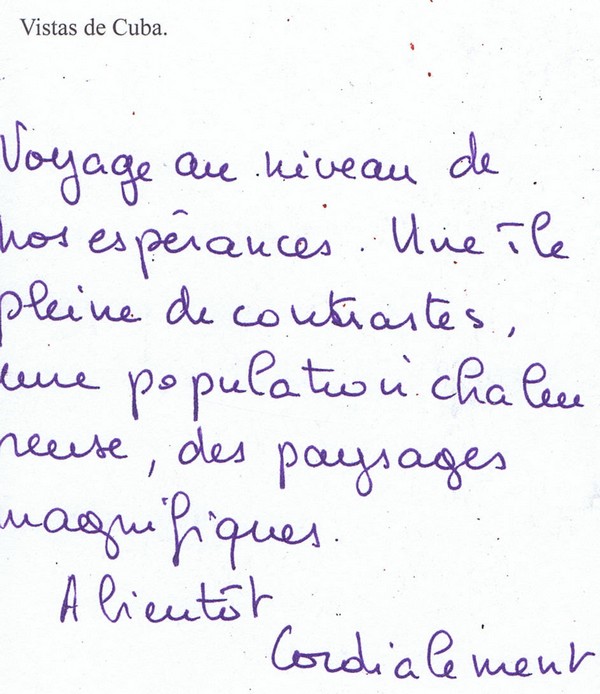 Vistas de Cuba.
Voyage au niveau de
nos espérances. Une île
pleine de contrastes,
une population chaleu
reuse, des paysages
magnifiques.
A bientôt
Cordialement